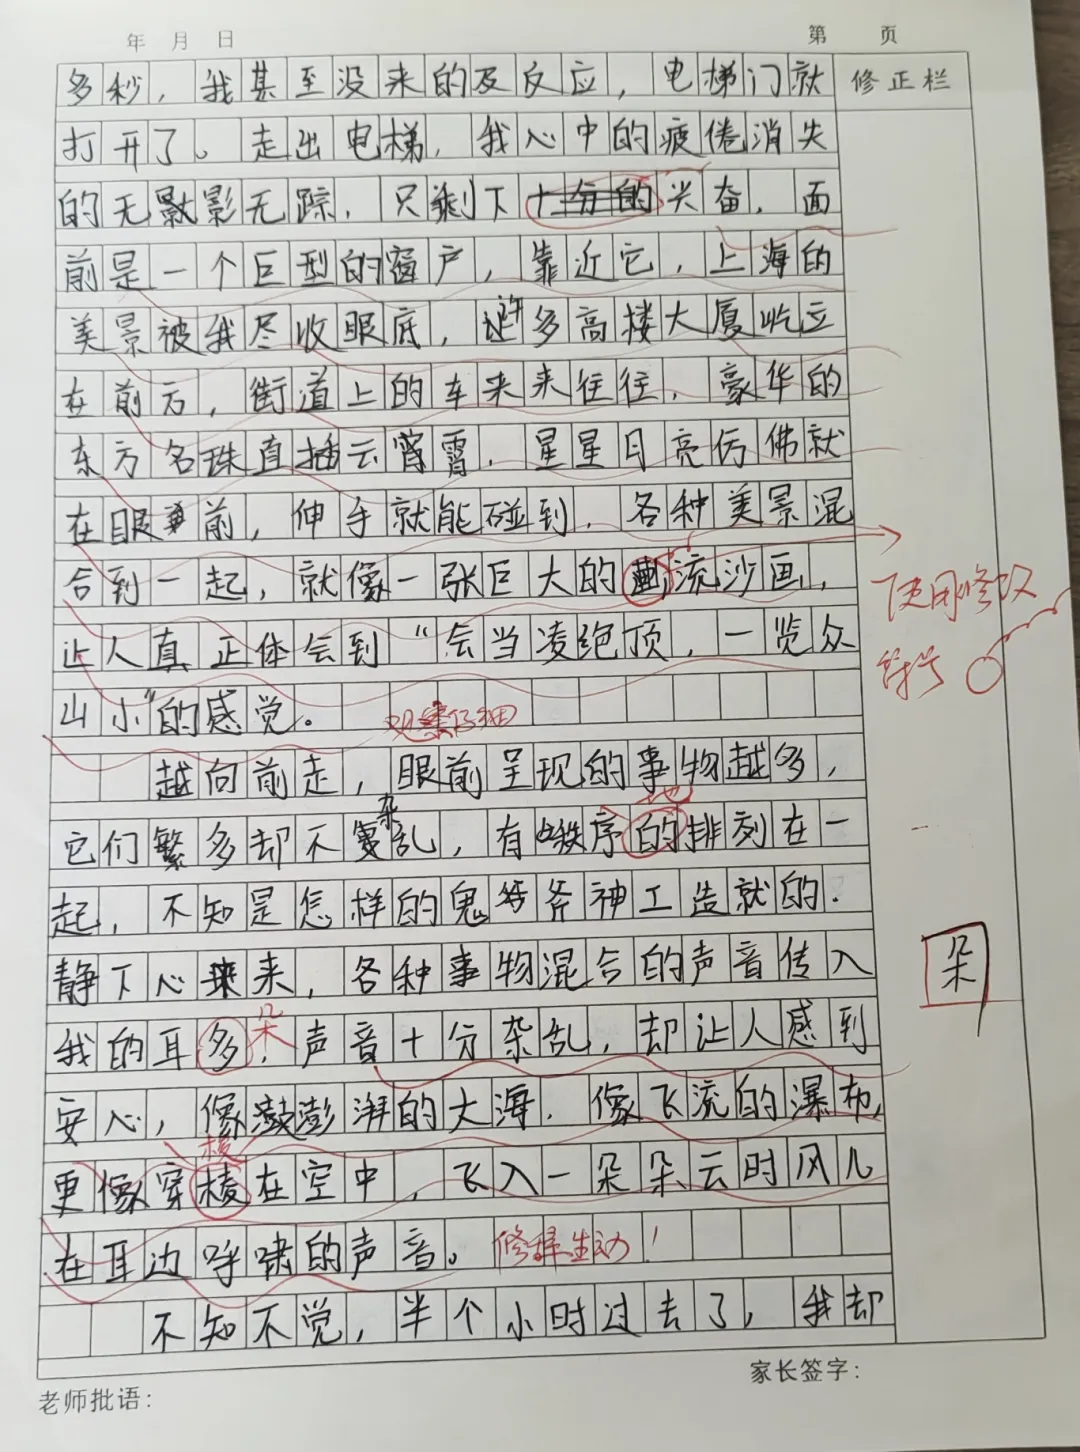 年 月 日
第 页
多秒，我甚至没来的及反应，电梯门就
修正栏
打开了。走出电梯，我心中的疲倦消失
的无影无踪，只剩下十分的兴奋，面
前是一个巨型的窗户，靠近它，上海的
美景被我尽收眼底，许多高楼大厦屹立
在前方，街道上的车来来往往，豪华的
东方名珠直插云霄，星星月亮仿佛就
在眼前，伸手就能碰到，各种美景混
合到一起，就像一张巨大的流沙画，
使用修改
让人真正体会到“会当凌绝顶，一览众
符号
山小”的感觉。
观察仔细
越向前走，眼前呈现的事物越多，
地
杂
它们繁多却不乱，有秩序的排列在一
起，不知是怎样的鬼斧神工造就的.
朵
静下心来，各种事物混合的声音传入
朵
我的耳多，声音十分杂乱，却让人感到
安心，像澎湃的大海，像飞流的瀑布，
梭
更像穿棱在空中，飞入一朵朵云时风儿
在耳边呼啸的声音。 修辞生动！
不知不觉，半个小时过去了，我却
家长签字：
老师批语：